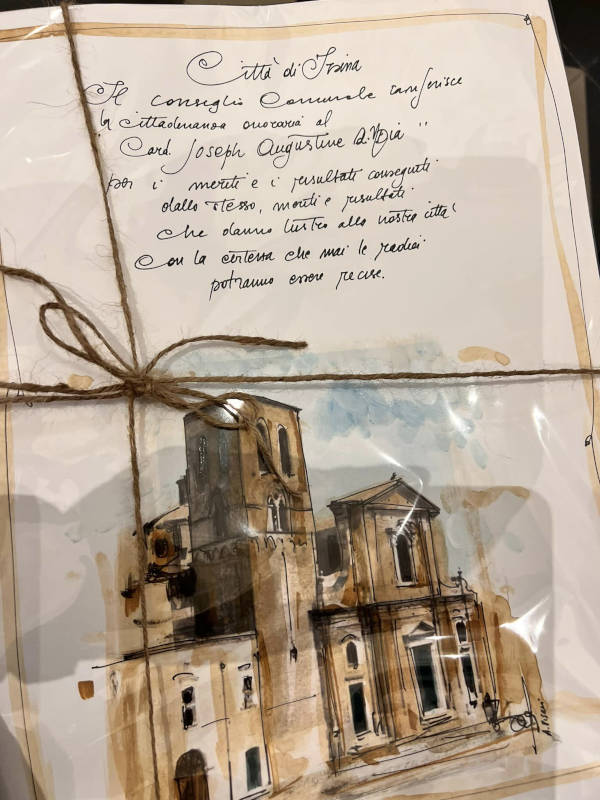 Città di Irsina
Il Consiglio Comunale conferisce
la cittadinanza onoraria al
Card. Joseph Augustine Di Noia"
per i meriti e i risultati conseguiti
dallo stesso, meriti e risultati
che danno lustro alla nostra città
Con la certezza che mai le radici
potranno essere recise.